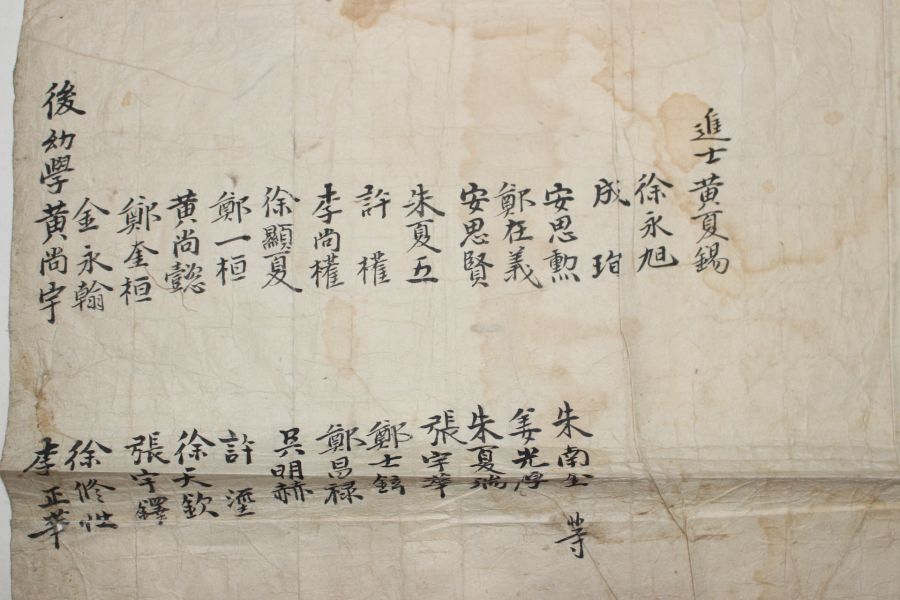 進士黃夏錫
徐永旭
成珀
安思勲
鄭在義
安思賢
朱夏五
許權
李尚權
徐顯夏
鄭一桓
黃尚懿
鄭奎桓
金永翰
後幼學黃尚宇
朱南 等
姜光厚
朱夏瑞
張宇華
鄭士鉉
鄭昌祿
吳明赫
許
徐天欽
張宇鐸
徐修性
李正華